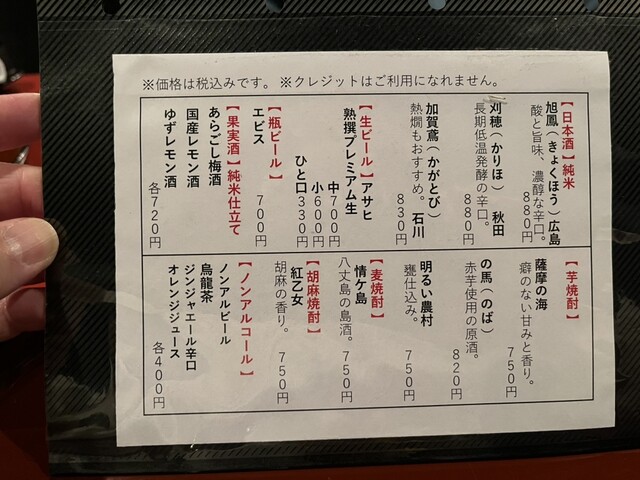 ※価格は税込みです。※クレジットはご利用になれません。
【日本酒】純米
旭鳳(きょくほう)広島
酸と旨味、濃醇な辛口。
880円
刈穂(かりほ) 秋田
長期低温発酵の辛口。
880円
加賀鳶(かがとび)
熱燗もおすすめ。石川
830円
【生ビール】アサヒ
熟撰プレミアム生
中700円
小600円
ひと口330円
【瓶ビール】
エビス
700円
【果実酒】純米仕立て
あらごし梅酒
国産レモン酒
ゆずレモン酒
各720円
【芋焼酎】
薩摩の海
癖のない甘みと香り。
750円
の馬(のば)
赤芋使用の原酒。
820円
明るい農村
甕仕込み。
750円
【麦焼酎】
情ケ島
八丈島の島酒。
750円
【胡麻焼酎】
紅乙女
胡麻の香り。
750円
【ノンアルコール】
ノンアルビール
烏龍茶
ジンジャエール辛口
オレンジジュース
各400円